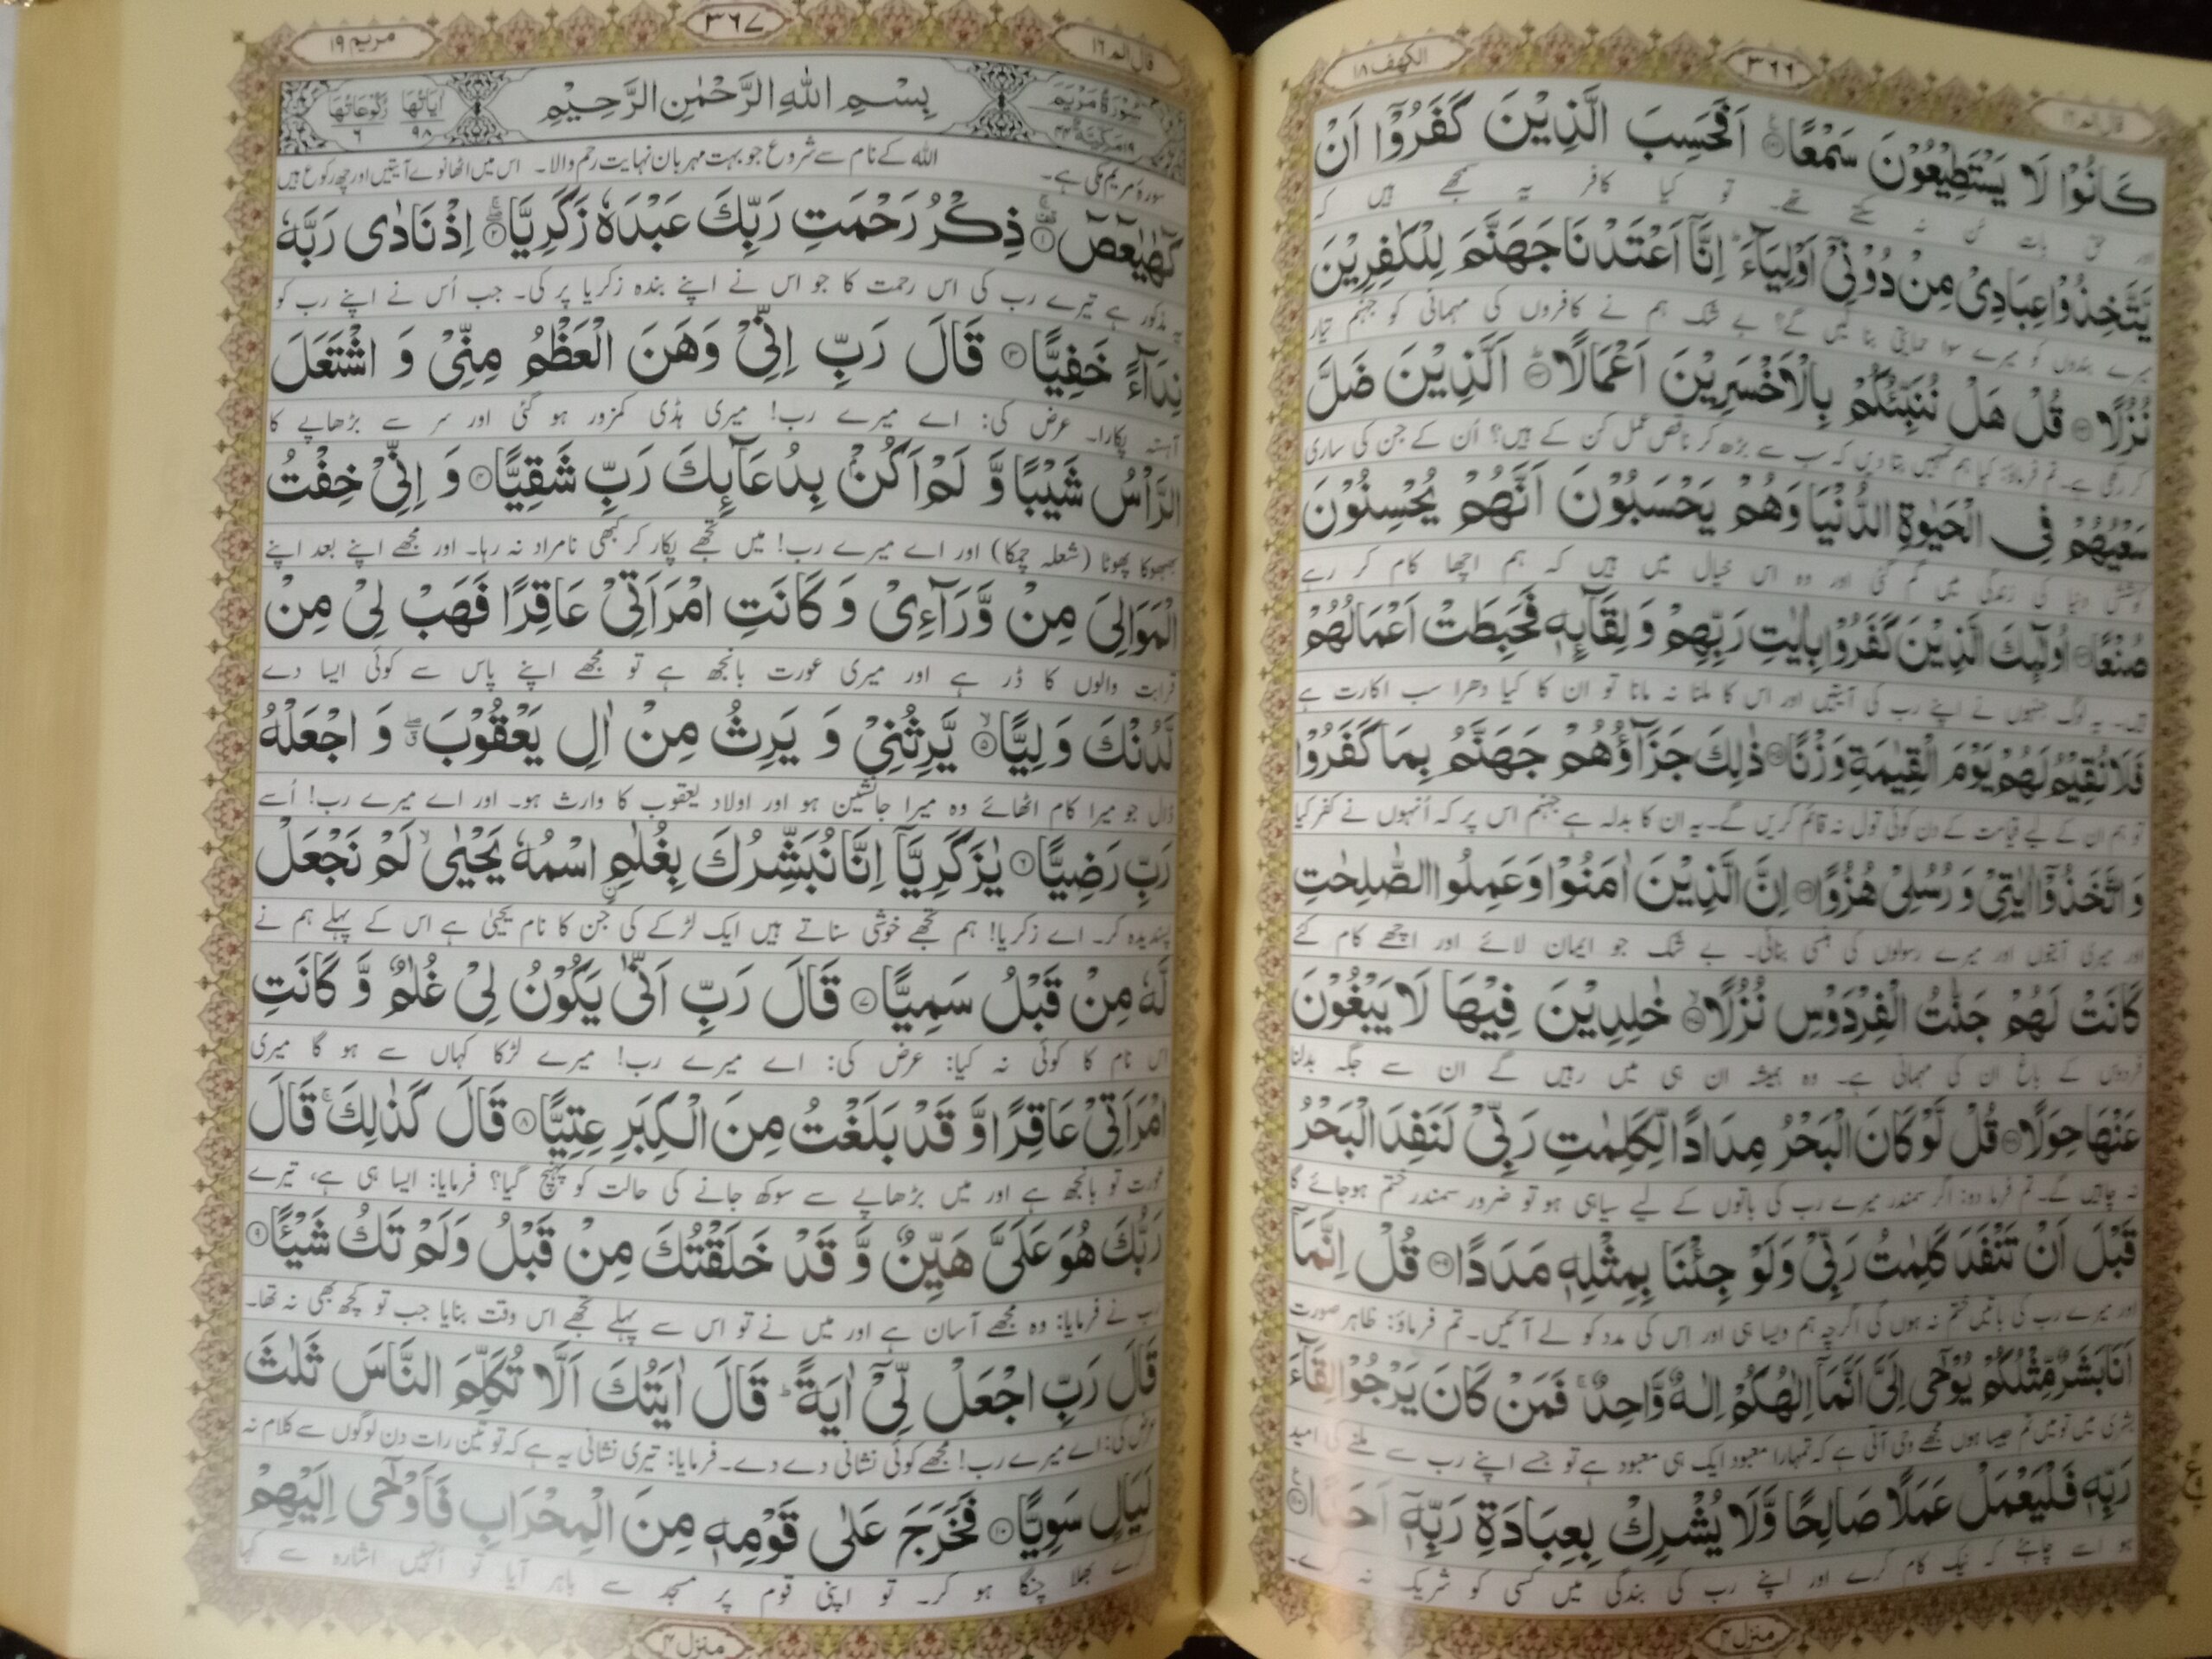 الكهف ١٨
٣٦٦
قال الم ١٦
كَانُوْا لَا يَسْتَطِيْعُوْنَ سَمْعًا ۝ اَفَحَسِبَ الَّذِيْنَ كَفَرُوْۤا اَنْ
اور حق بات سن نہ سکتے تھے۔ تو کیا کافر یہ سمجھے ہیں کہ
يَّتَّخِذُوْا عِبَادِيْ مِنْ دُوْنِيْۤ اَوْلِيَآءَ ؕ اِنَّاۤ اَعْتَدْنَا جَهَنَّمَ لِلْكٰفِرِيْنَ
میرے بندوں کو میرے سوا حمایتی بنا لیں گے؟ بے شک ہم نے کافروں کی مہمانی کو جہنم تیار
نُزُلًا ۝ قُلْ هَلْ نُنَبِّئُكُمْ بِالْاَخْسَرِيْنَ اَعْمَالًا ۝ اَلَّذِيْنَ ضَلَّ
کر رکھی ہے۔ تم فرماؤ: کیا ہم تمہیں بتا دیں کہ سب سے بڑھ کر ناقص عمل کن کے ہیں؟ اُن کے جن کی ساری
سَعْيُهُمْ فِي الْحَيٰوةِ الدُّنْيَا وَهُمْ يَحْسَبُوْنَ اَنَّهُمْ يُحْسِنُوْنَ
کوشش دنیا کی زندگی میں گم گئی اور وہ اس خیال میں ہیں کہ ہم اچھا کام کر رہے
صُنْعًا ۝ اُولٰٓئِكَ الَّذِيْنَ كَفَرُوْا بِاٰيٰتِ رَبِّهِمْ وَلِقَآئِهٖ فَحَبِطَتْ اَعْمَالُهُمْ
ہیں۔ یہ لوگ جنہوں نے اپنے رب کی آیتیں اور اس کا ملنا نہ مانا تو ان کا کیا دھرا سب اکارت ہے
فَلَا نُقِيْمُ لَهُمْ يَوْمَ الْقِيٰمَةِ وَزْنًا ۝ ذٰلِكَ جَزَآؤُهُمْ جَهَنَّمُ بِمَا كَفَرُوْا
تو ہم ان کے لیے قیامت کے دن کوئی تول نہ قائم کریں گے۔ یہ ان کا بدلہ ہے جہنم اس پر کہ اُنہوں نے کفر کیا
وَاتَّخَذُوْۤا اٰيٰتِيْ وَرُسُلِيْ هُزُوًا ۝ اِنَّ الَّذِيْنَ اٰمَنُوْا وَعَمِلُوا الصّٰلِحٰتِ
اور میری آیتوں اور میرے رسولوں کی ہنسی بنائی۔ بے شک جو ایمان لائے اور اچھے کام کئے
كَانَتْ لَهُمْ جَنّٰتُ الْفِرْدَوْسِ نُزُلًا ۝ خٰلِدِيْنَ فِيْهَا لَا يَبْغُوْنَ
فردوس کے باغ ان کی مہمانی ہے۔ وہ ہمیشہ ان ہی میں رہیں گے ان سے جگہ بدلنا
عَنْهَا حِوَلًا ۝ قُلْ لَّوْ كَانَ الْبَحْرُ مِدَادًا لِّكَلِمٰتِ رَبِّيْ لَنَفِدَ الْبَحْرُ
نہ چاہیں گے۔ تم فرما دو: اگر سمندر میرے رب کی باتوں کے لیے سیاہی ہو تو ضرور سمندر ختم ہو جائے گا
قَبْلَ اَنْ تَنْفَدَ كَلِمٰتُ رَبِّيْ وَلَوْ جِئْنَا بِمِثْلِهٖ مَدَدًا ۝ قُلْ اِنَّمَاۤ
اور میرے رب کی باتیں ختم نہ ہوں گی اگرچہ ہم ویسا ہی اور اس کی مدد کو لے آئیں۔ تم فرماؤ: ظاہر صورت
اَنَا بَشَرٌ مِّثْلُكُمْ يُوْحٰۤى اِلَيَّ اَنَّمَاۤ اِلٰهُكُمْ اِلٰهٌ وَّاحِدٌ ۚ فَمَنْ كَانَ يَرْجُوْا لِقَآءَ
بشری میں تو میں تم جیسا ہوں مجھے وحی آتی ہے کہ تمہارا معبود ایک ہی معبود ہے تو جسے اپنے رب سے ملنے کی امید
رَبِّهٖ فَلْيَعْمَلْ عَمَلًا صَالِحًا وَّلَا يُشْرِكْ بِعِبَادَةِ رَبِّهٖۤ اَحَدًا ۝
ہو اسے چاہئے کہ نیک کام کرے اور اپنے رب کی بندگی میں کسی کو شریک نہ کرے۔
منزل ۴
مريم ١٩
٣٦٧
قال الم ١٦
سُوْرَةُ مَرْيَمَ
بِسْمِ اللهِ الرَّحْمٰنِ الرَّحِيْمِ
اٰيَاتُهَا ٩٨ رُكُوْعَاتُهَا ٦
سورۂ مریم مکی ہے۔ اللہ کے نام سے شروع جو بہت مہربان نہایت رحم والا۔ اس میں اٹھانوے آیتیں اور چھ رکوع ہیں
كٓهٰيٰعٓصٓ ۝١ ذِكْرُ رَحْمَتِ رَبِّكَ عَبْدَهٗ زَكَرِيَّا ۝٢ اِذْ نَادٰى رَبَّهٗ
یہ مذکور ہے تیرے رب کی اس رحمت کا جو اس نے اپنے بندہ زکریا پر کی۔ جب اُس نے اپنے رب کو
نِدَآءً خَفِيًّا ۝٣ قَالَ رَبِّ اِنِّيْ وَهَنَ الْعَظْمُ مِنِّيْ وَ اشْتَعَلَ
آہستہ پکارا۔ عرض کی: اے میرے رب! میری ہڈی کمزور ہو گئی اور سر سے بڑھاپے کا
الرَّاْسُ شَيْبًا وَّ لَمْ اَكُنْۢ بِدُعَآئِكَ رَبِّ شَقِيًّا ۝٤ وَ اِنِّيْ خِفْتُ
بھبھوکا پھوٹا (شعلہ چمکا) اور اے میرے رب! میں تجھے پکار کر کبھی نامراد نہ رہا۔ اور مجھے اپنے بعد اپنے
الْمَوَالِيَ مِنْ وَّرَآءِيْ وَ كَانَتِ امْرَاَتِيْ عَاقِرًا فَهَبْ لِيْ مِنْ
قرابت والوں کا ڈر ہے اور میری عورت بانجھ ہے تو مجھے اپنے پاس سے کوئی ایسا دے
لَّدُنْكَ وَلِيًّا ۝٥ يَّرِثُنِيْ وَ يَرِثُ مِنْ اٰلِ يَعْقُوْبَ ۖ وَ اجْعَلْهُ
ڈال جو میرا کام اٹھائے وہ میرا جانشین ہو اور اولاد یعقوب کا وارث ہو۔ اور اے میرے رب! اُسے
رَبِّ رَضِيًّا ۝٦ يٰزَكَرِيَّاۤ اِنَّا نُبَشِّرُكَ بِغُلٰمِ اسْمُهٗ يَحْيٰى ۙ لَمْ نَجْعَلْ
پسندیدہ کر۔ اے زکریا! ہم تجھے خوشی سناتے ہیں ایک لڑکے کی جن کا نام یحیی ہے اس کے پہلے ہم نے
لَّهٗ مِنْ قَبْلُ سَمِيًّا ۝٧ قَالَ رَبِّ اَنّٰى يَكُوْنُ لِيْ غُلٰمٌ وَّ كَانَتِ
اس نام کا کوئی نہ کیا: عرض کی: اے میرے رب! میرے لڑکا کہاں سے ہو گا میری
امْرَاَتِيْ عَاقِرًا وَّ قَدْ بَلَغْتُ مِنَ الْكِبَرِ عِتِيًّا ۝٨ قَالَ كَذٰلِكَ ۚ قَالَ
عورت تو بانجھ ہے اور میں بڑھاپے سے سوکھ جانے کی حالت کو پہنچ گیا؟ فرمایا: ایسا ہی ہے، تیرے
رَبُّكَ هُوَ عَلَيَّ هَيِّنٌ وَّ قَدْ خَلَقْتُكَ مِنْ قَبْلُ وَلَمْ تَكُ شَيْئًا ۝٩
رب نے فرمایا: وہ مجھے آسان ہے اور میں نے تو اس سے پہلے تجھے اس وقت بنایا جب تو کچھ بھی نہ تھا۔
قَالَ رَبِّ اجْعَلْ لِّيْۤ اٰيَةً ؕ قَالَ اٰيَتُكَ اَلَّا تُكَلِّمَ النَّاسَ ثَلٰثَ
عرض کی: اے میرے رب! مجھے کوئی نشانی دے دے۔ فرمایا: تیری نشانی یہ ہے کہ تو تین رات دن لوگوں سے کلام نہ
لَيَالٍ سَوِيًّا ۝١٠ فَخَرَجَ عَلٰى قَوْمِهٖ مِنَ الْمِحْرَابِ فَاَوْحٰۤى اِلَيْهِمْ
کرے بھلا چنگا ہو کر۔ تو اپنی قوم پر مسجد سے باہر آیا تو انہیں اشارہ سے کہا
منزل ۴